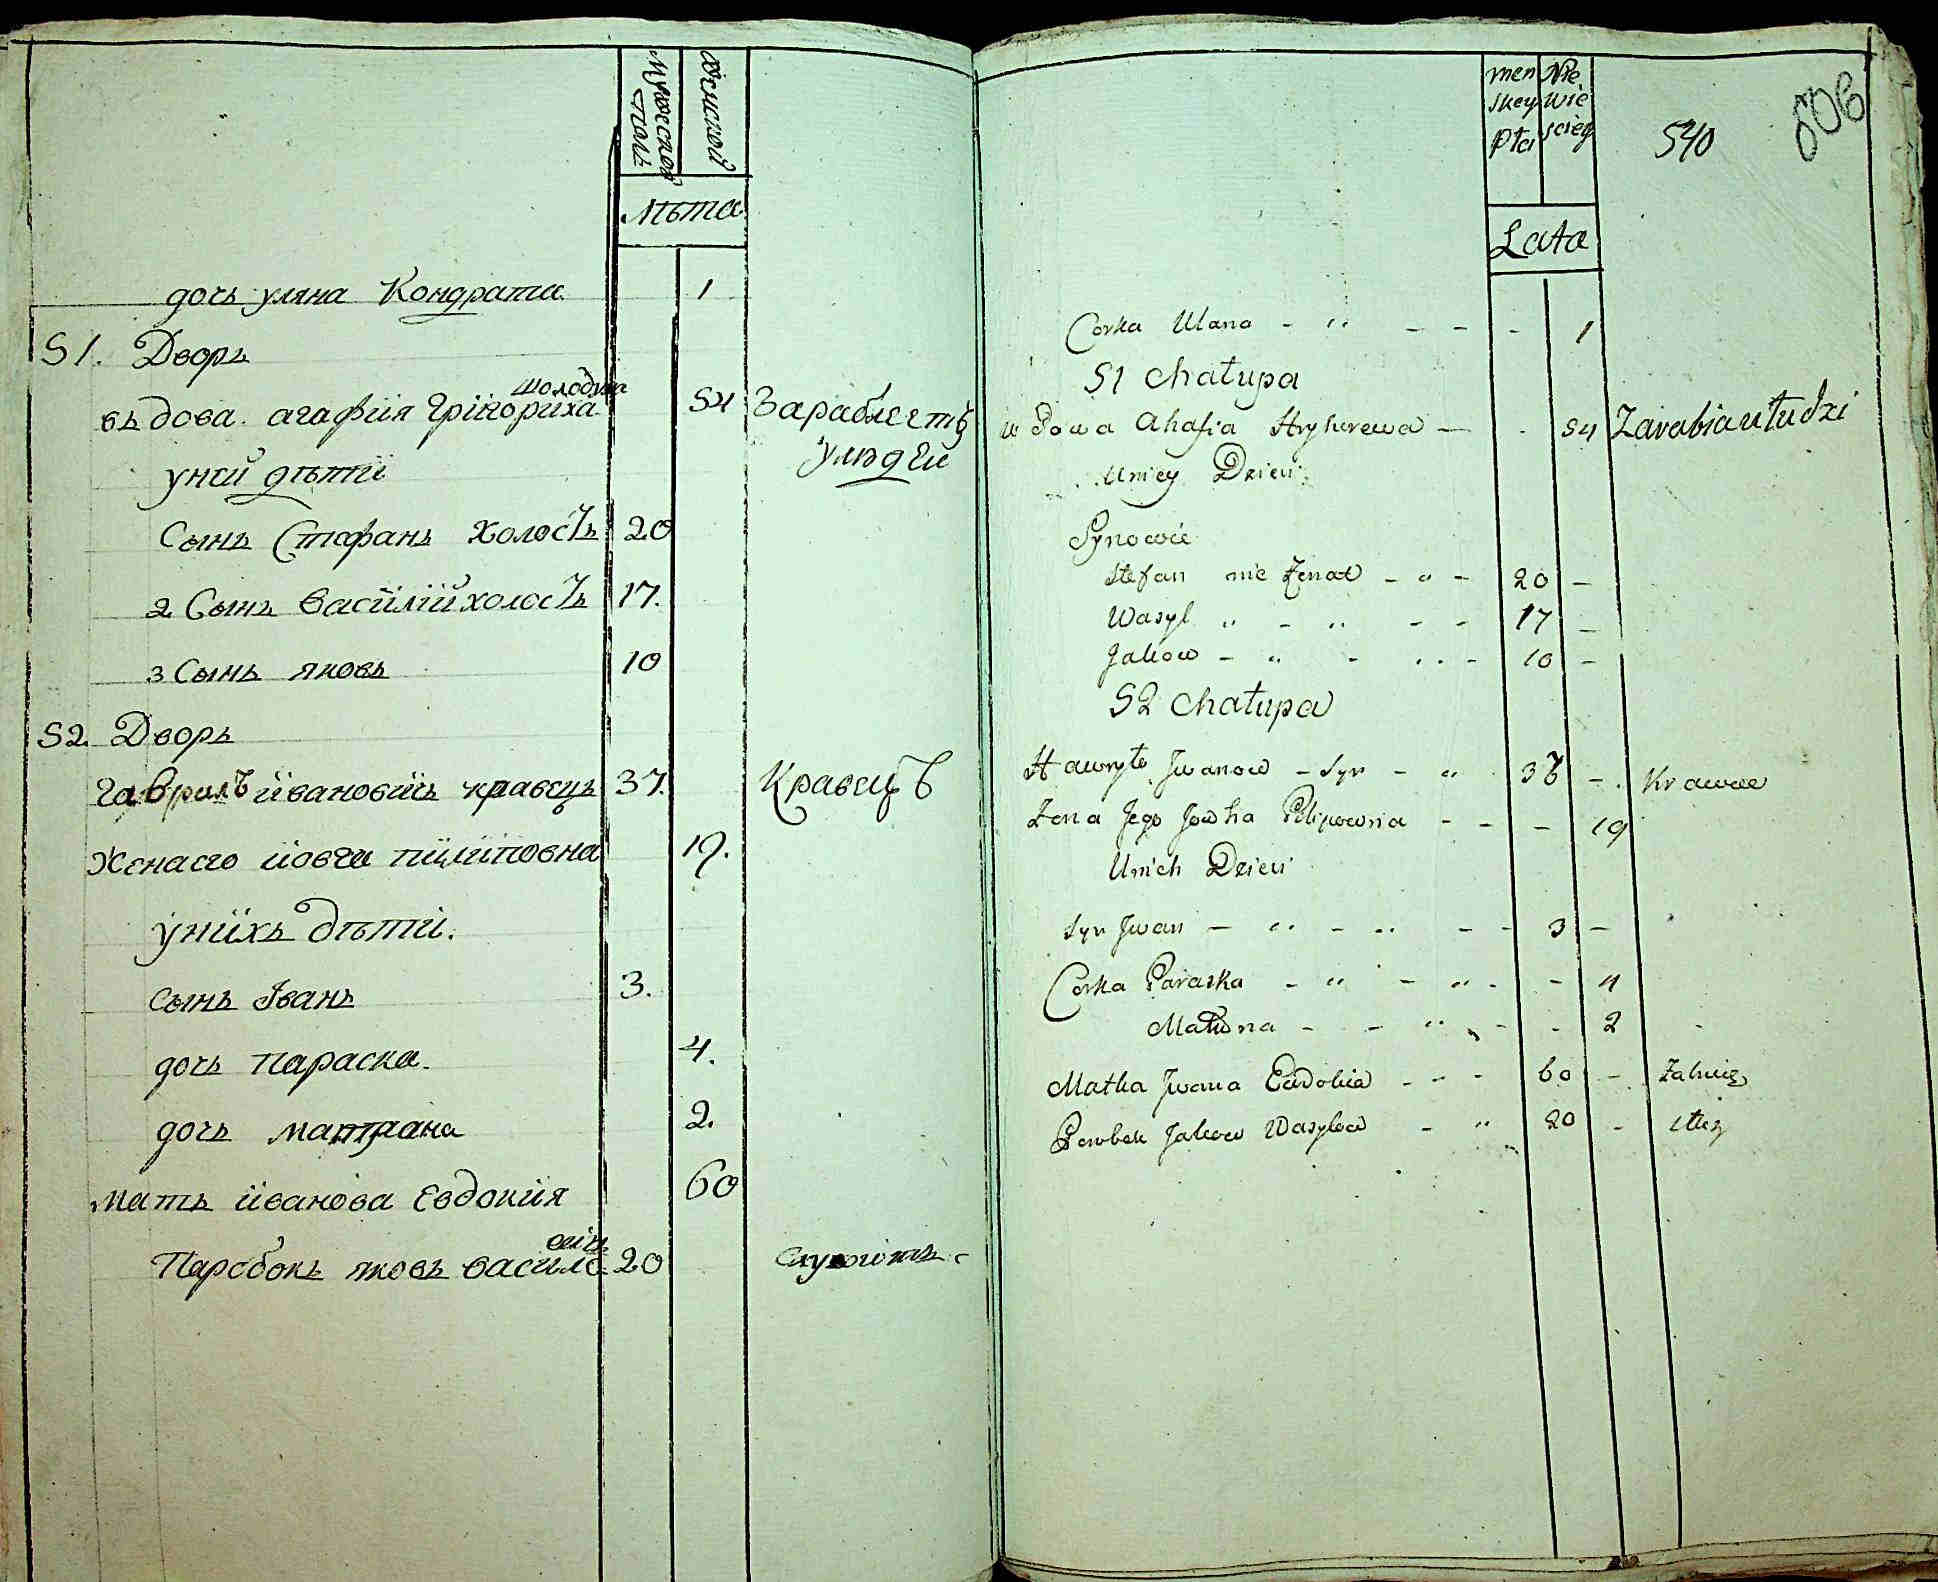 мужеска полъ
женской
лѣта
дочь уляна Кондрата 1
51. Дворъ
шолодка
вьдова агафия Грiгориха 54 Зараблѣетъ
у ней дѣти у людеи
Сынъ Стефанъ холостъ 20
2 Сынъ василий холостъ 17.
3 Сынъ яковъ 10
52. Дворъ
гаврилъ ивановичь кравецъ 37. Кравецъ
Жена его иовга пилиповна 19.
у нихъ дѣти.
сынъ Iванъ 3.
дочь параска. 4.
дочь матрона 2.
мать иванова Евдокия 60
вичъ
Паробокъ яковъ васило 20 служитъ
men Nie
skey wie
płci sciey
540
Lata
Corka Ulana - " - - - 1
51 chałupa
wdowa Ahafia Hryhorewa - . 54 Zarabia u ludzi
U niey Dzieci
Synowie
Stefan nie żenat - " - 20 -
Wasyl " - " - - 17 -
Jakow - " - " - 10 -
52 chałupa
Hawryło Iwanow - Syn - " 37 - Krawiec
Żona Jego Jowha Pilipowna - - - 19
U nich Dzieci
Syn Jwan - " - " - - 3 -
Corka Paraska - " - " - - 4
Matrona - - " - - 2
Matka Jwana Eudokia - - - 60 -
Parobek Jakow Wasylow - " 20 -